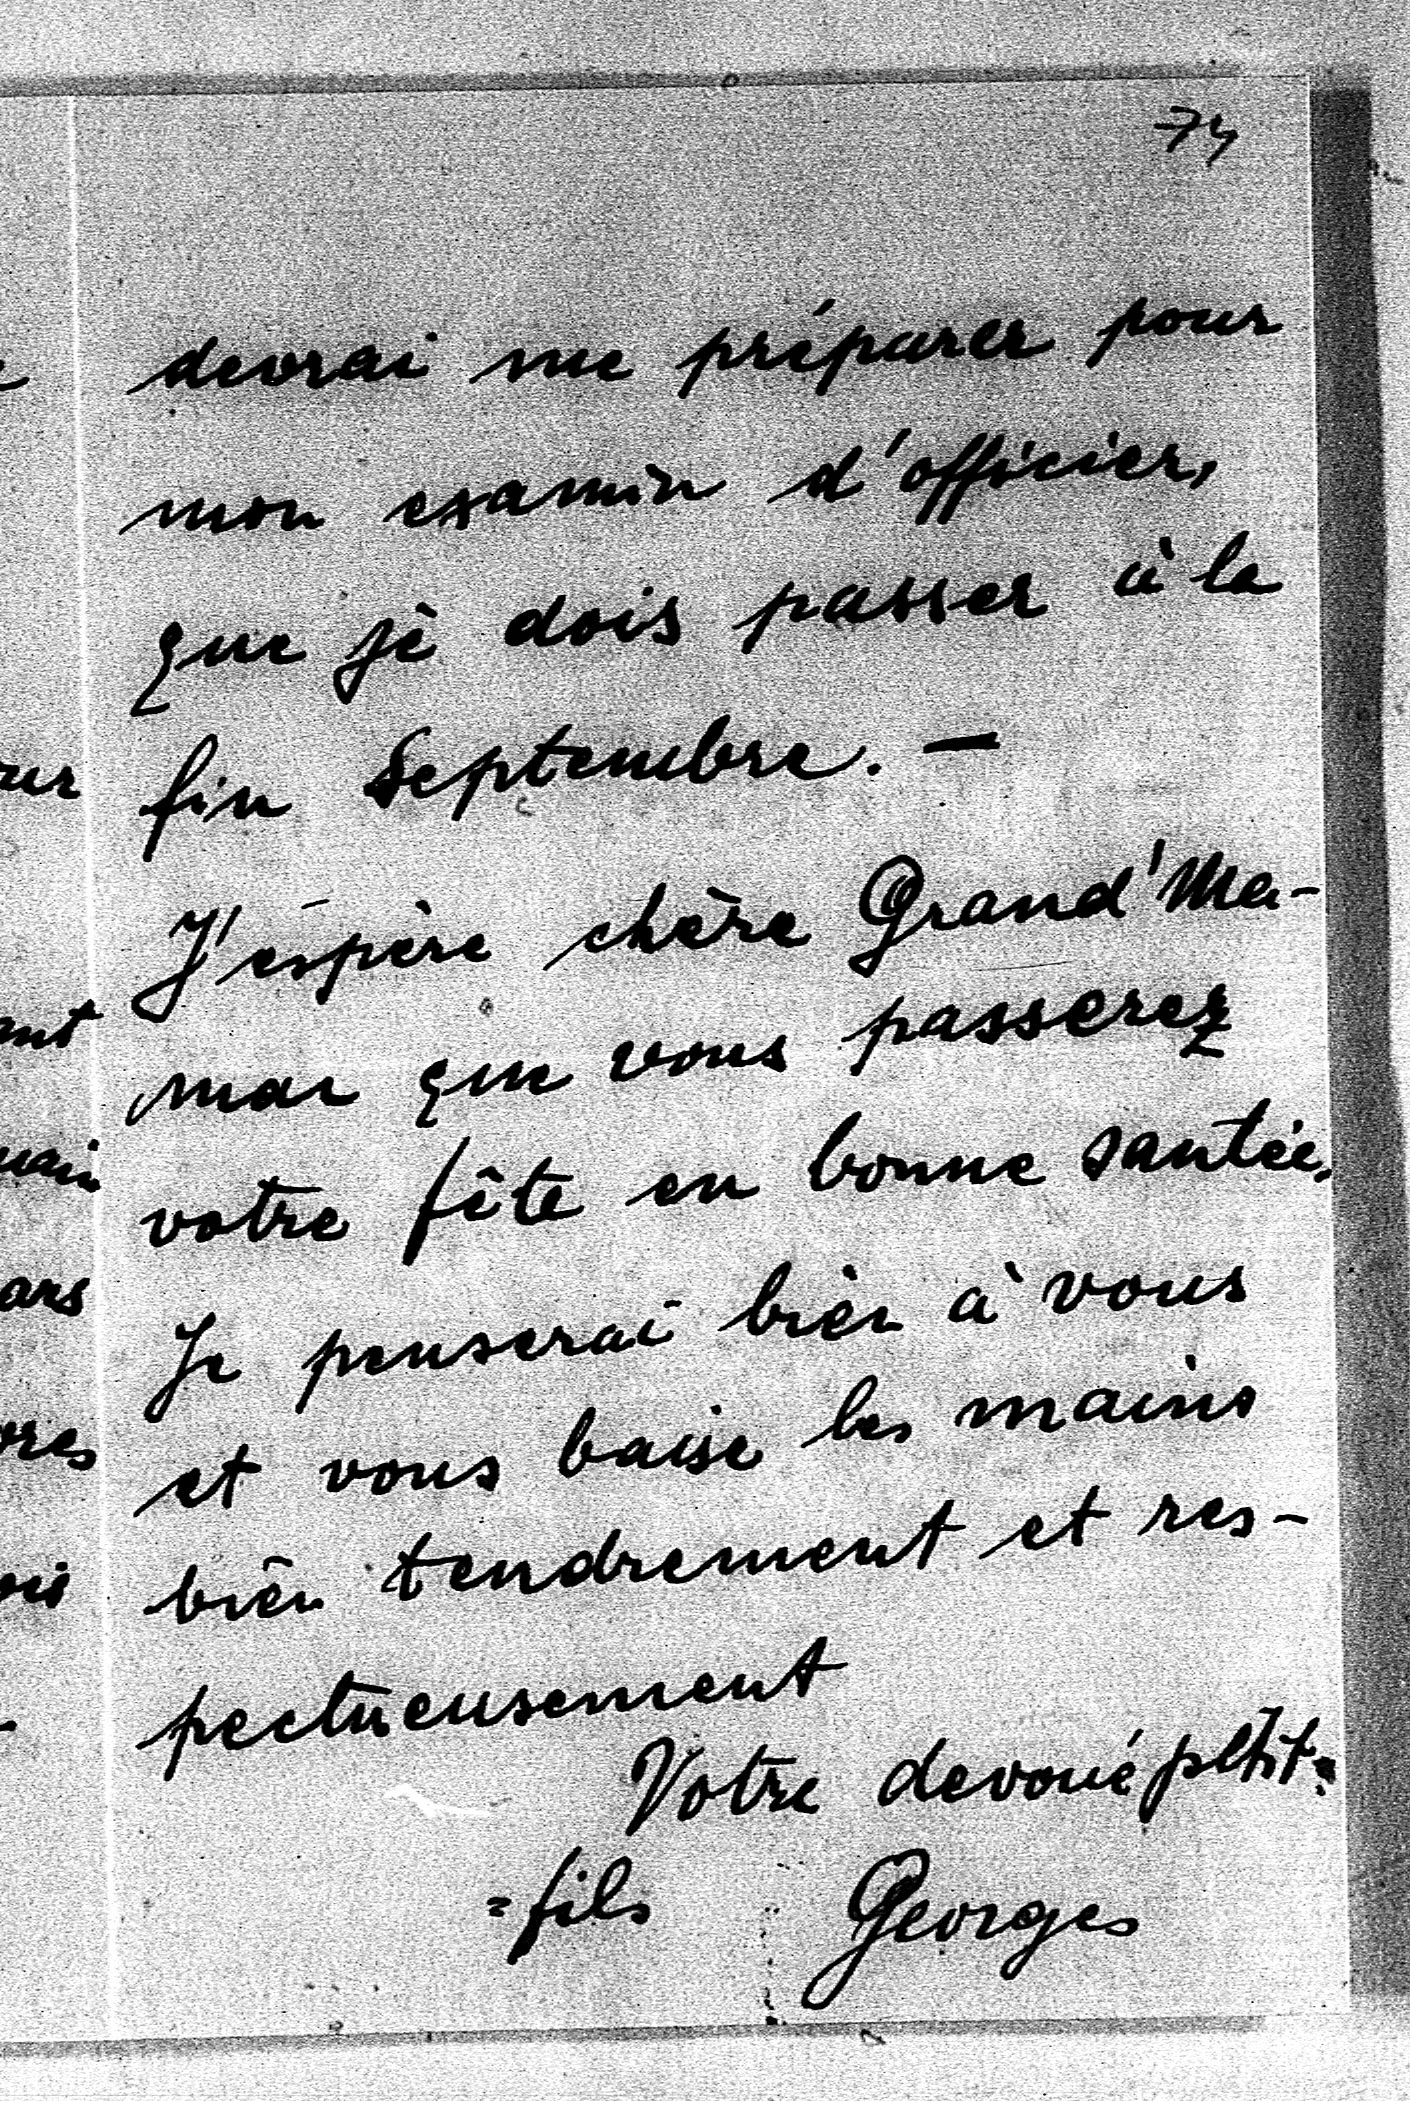 74
devrai me préparer pour
mon examin d'officier,
que je dois passer à la
fin Septembre. —
J'espère chère Grand'Ma-
man que vous passerez
votre fête en bonne santée.
Je penserai bien à vous
et vous baise les mains
bien tendrement et res-
pectueusement
Votre devoué petit=
=fils Georges